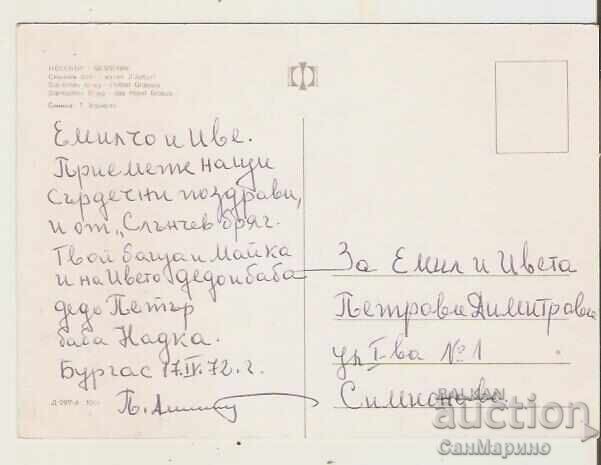 НЕСЕБЪР - NESSEBRE
Слънчев бряг - хотел "Глобус"
Слънчев бряг -
Снимка:
Емилчо и Иве.
Приемете наши
сърдечни поздрави,
и от „Слънчев бряг.
Твой баща и Майка
и на Ивето дедо и баба
дедо Петър
баба Надка.
Бургас 17.IV.72.г.
П.
За Емил и Цвета
Петрови Димитрови
ул I-ва №1
Симеоново
Д-297-А
BALKAN
auction
СанМарино